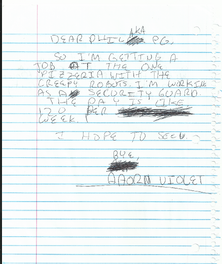 AKA
DEAR PHIL P.G.
SO I'M GETTING A
JOB AT THE ONE
PIZZERIA WITH THE
CREEPY ROBOTS. I'M WORKIN
AS A SECURITY GUARD
THE PAY IS LIKE
120 PER
WEEK!
I HOPE TO SEE U
BYE,
AARON VIOLET